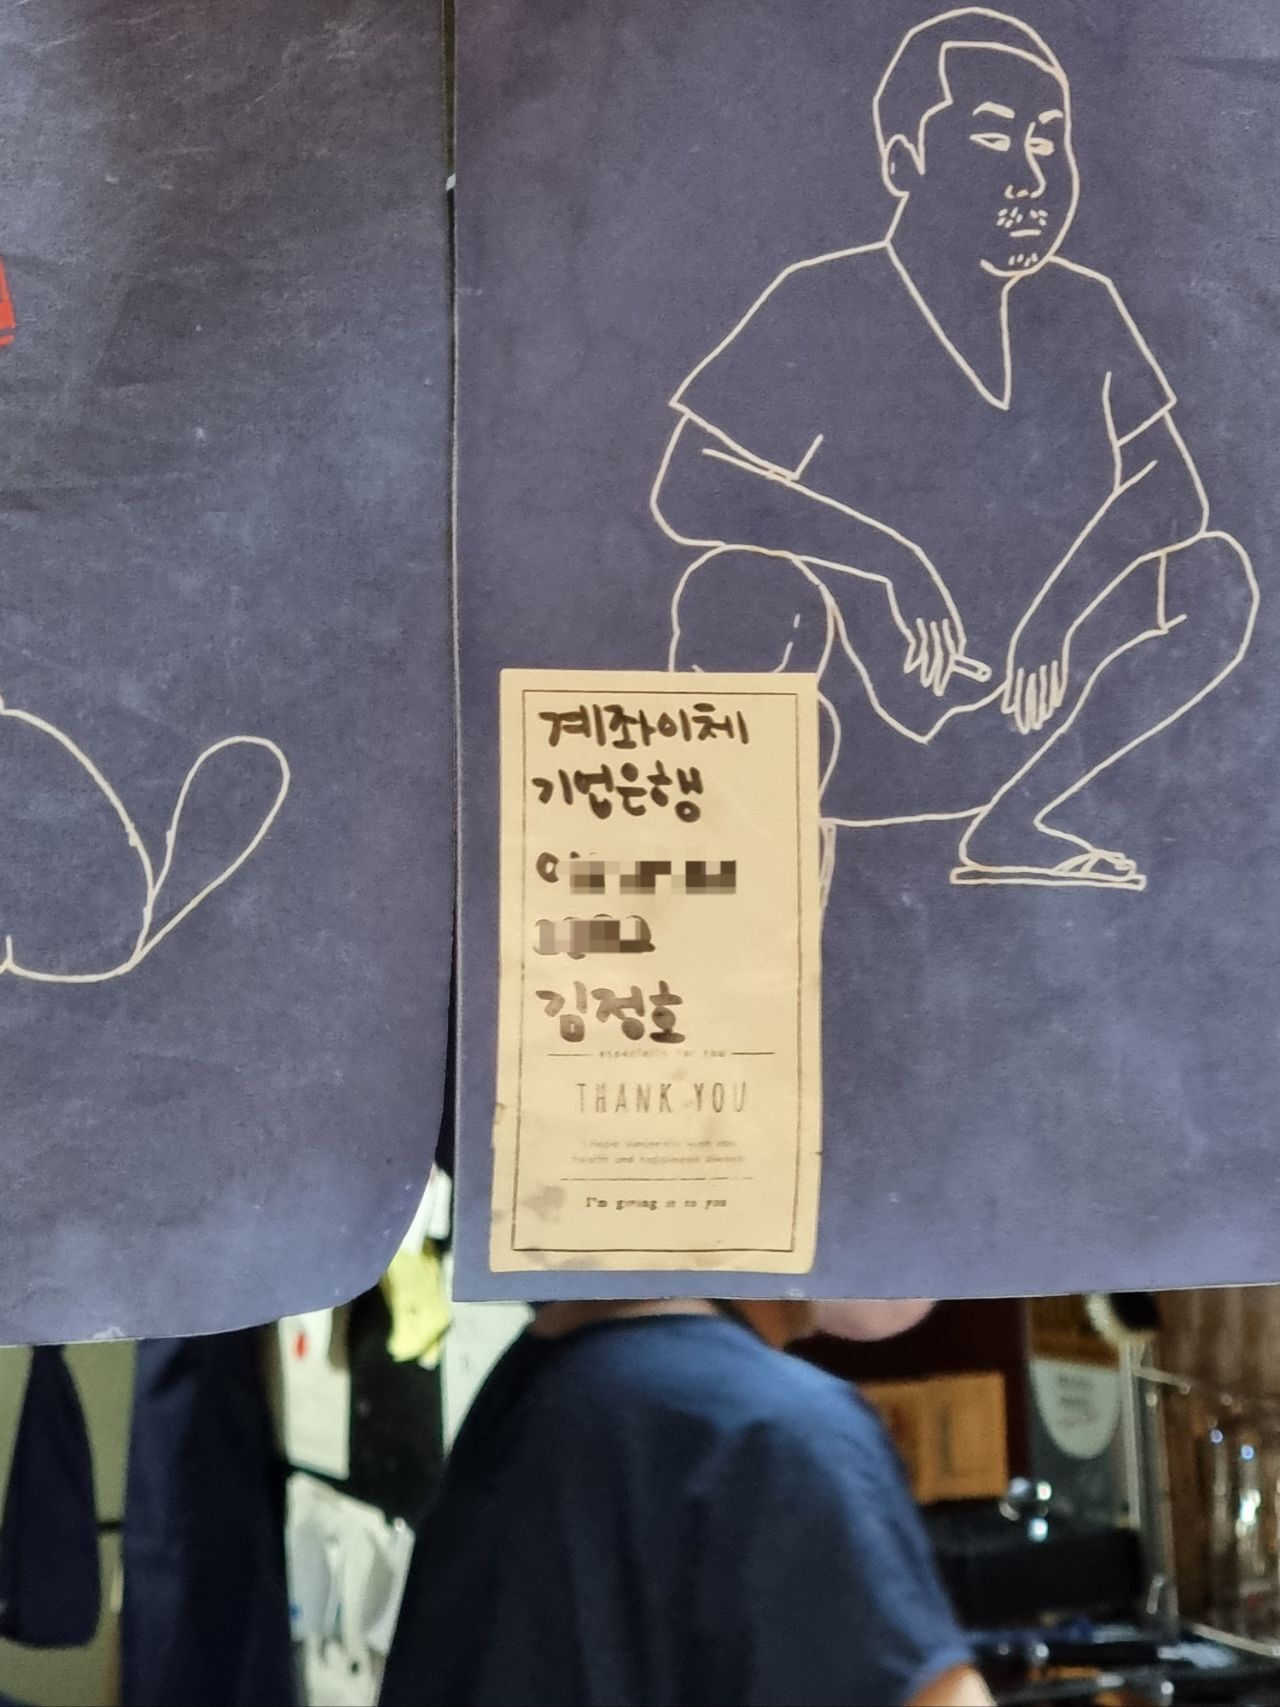 계좌이체
기업은행
김정호
especially for you
THANK YOU
I hope sincerely wish you
health and happiness always
I'm giving it to you